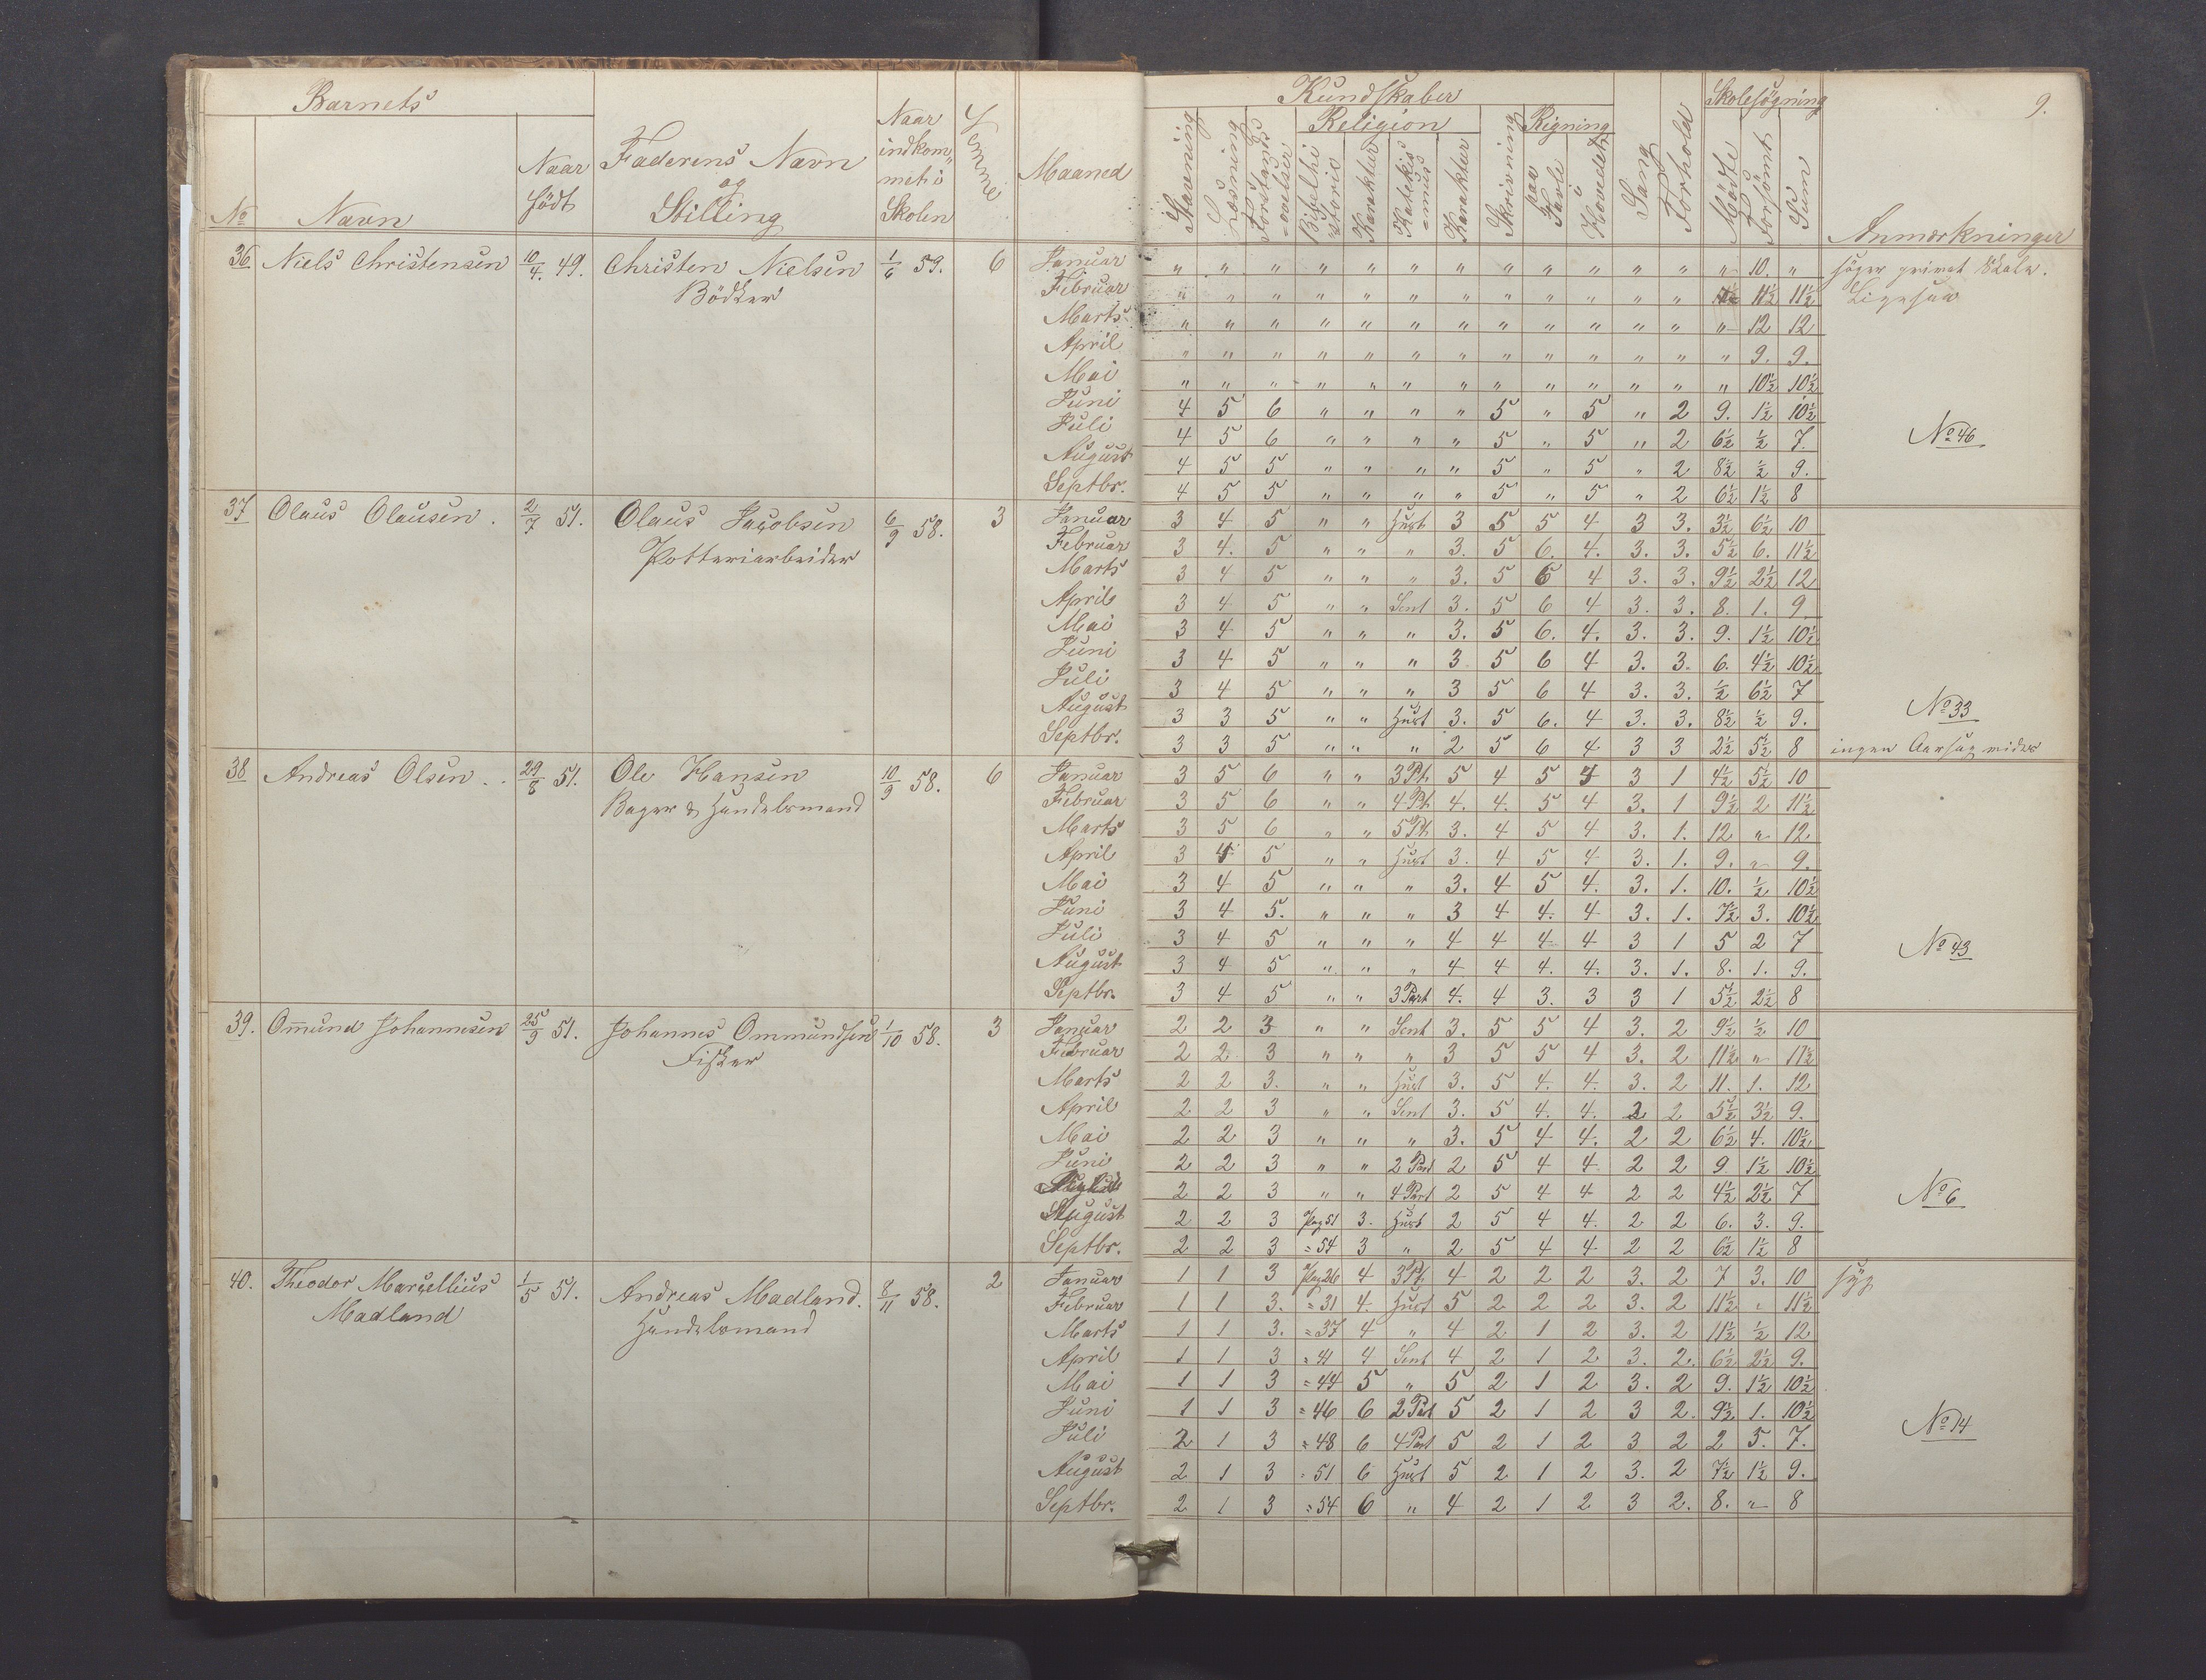 9.
Barnets
Kundskaber
Skolesøgning
Religion
Regning
No
Navn
Naar født
Faderens Navn og Stilling
Naar indkommet i Skolen
Evne
Maaned
Stavening
Læsning
Forstands=øvelser
Bibelhistorie
Karakter
Katekis=mus
Karakter
Skrivning
paa Tavle
i Hovedet
Sang
Forhold
Mødte
Forsømt
Sum
Anmærkninger
36 Niels Christensen 10/4. 49. Christen Nielsen 1/6 59. 6 Januar " " " " " " " " " " " " " 10. " søger privat Skole.
Bödker Februar " " " " " " " " " " " " 11½ 11½ Ligesaa
Marts " " " " " " " " " " " " " 12 12
April " " " " " " " " " " " " " 9. 9.
Mai " " " " " " " " " " " " " 10½ 10½
Juni 4 5 6 " " " " 5 " 5 " 2 9. 1½ 10½
Juli 4 5 6 " " " " 5 " 5 " 2 6½ ½ 7. No 46
August 4 5 5 " " " " 5 " 5 " 2 8½ ½ 9.
Septbr. 4 5 5 " " " " 5 " 5 " 2 6½ 1½ 8
37 Olaus Olausen. 2/7 51. Olaus Jacobsen 6/9 58. 3 Januar 3 4 5 " " Hust 3 5 5 4 3 3. 3½ 6½ 10
Potteriarbeider Februar 3 4. 5 " " " 3. 5 6. 4. 3. 3. 5½ 6. 11½
Marts 3 4 5 " " " 3. 5 6 4 3. 3. 9½ 2½ 12
April 3 4 5 " " Sent 3. 5 6 4 3. 3. 8. 1. 9.
Mai 3 4 5 " " " 3. 5 6. 4. 3. 3. 9. 1½ 10½
Juni 3 4 5 " " " 3 5 6 4 3. 3. 6. 4½ 10½
Juli 3 4 5 " " " 3 5 6 4 3. 3. ½ 6½ 7
August 3 3 5 " " Hust 3. 5 6. 4 3. 3. 8½ ½ 9. No 33
Septbr. 3 3 5 " " " 2 5 6 4 3 3 2½ 5½ 8 ingen Aarsag
38 Andreas Olsen.. 29/8 51. Ole Hansen 10/9 58. 6 Januar 3 5 6 " " 3 Pt. 5 4 5 4 3 1 4½ 5½ 10
Bager & Handelsmand Februar 3 5 6 " " 4 Pt. 4. 4. 5 4 3. 1 9½ 2 11½
Marts 3 5 6 " " 5 Pt. 3. 4 5 4 3. 1. 12 " 12
April 3 4 5 " " Hust 3. 4 5 4 3. 1. 9. " 9.
Mai 3 4 5 " " " 3. 4 5 4. 3. 1. 10. ½ 10½
Juni 3 4 5. " " " 3 4 4. 4 3. 1. 7½ 3. 10½
Juli 3 4 5 " " " 4 4 4 4 3 1 5 2 7 No 43
August 3 4 5 " " " 4 4 4. 4. 3. 1. 8. 1. 9.
Septbr. 3 4 5 " " 3 Part 4. 4 3. 3 3 1 5½ 2½ 8
39. Omund Johannesen 25/9 51. Johannes Ommundsen 1/10 58. 3 Januar 2 2 3 " " Sent 3. 5 5 4 3. 2 9½ ½ 10
Fisker Februar 2 2 3 " " " 3 5 5 4 3. 2 11½ " 11½
Marts 2 2 3. " " Hust 3. 5 4. 4. 3. 2 11. 1. 12
April 2 2 3 " " Sent 3. 5 4. 4. 2 2 5½ 3½ 9.
Mai 2 2 3 " " " 3. 5 4 4. 2 2 6½ 4. 10½
Juni 2 2 3 " " 2 Part 2 5 4 4 2 2 9 1½ 10½
2 2 3 " " 4 Part 2 5 4 4 2 2 4½ 2½ 7 No 6
August 2 2 3 Pag 51 3. Hust 2 5 4 4. 2 2 6. 3. 9.
Septbr. 2 2 3 = 54 3 " 2 5 4 4 2 2 6½ 1½ 8
40. Theodor Marcellius 1/5 51. Andreas Madland. 8/11 58. 2 Januar 1 1 3 Pag 26 4 3 Pt. 4 2 2 2 3. 2 7 3. 10 syg
Madland Handelsmand Februar 1 1 3. = 31 4. Hust 5 2 2 2 3. 2 11½ " 11½
Marts 1 1 3. = 37 4 " 4 2 1 2 3. 2 11½ ½ 12
April 1 1 3 = 41 4 Sent 4 2 1 2 3. 2. 6½ 2½ 9.
Mai 1 1 3 = 44 5 " 5 2 1 2 3. 2 9. 1½ 10½
Juni 1 1 3 = 46 6 2 Part 5 2 1 2 3 2. 9½ 1. 10½
Juli 2 1 3 = 48 6 4 Part 5 2 1 2 3 2 2 5. 7. No 14
August 2 1 3 = 51 6 Hust 5 2 1 2 3. 2 7½ 1½ 9.
Septbr. 2 1 3 = 54 6 " 4 2 1 2 3 2. 8. " 8